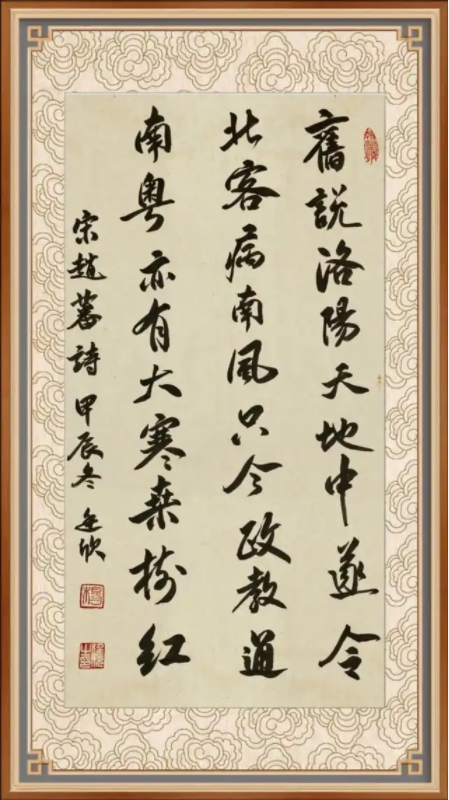 舊説洛陽天地中遂令
北客病南風只今政教通
南粵亦有大寒桒樹紅
宋趙蕃詩甲辰冬